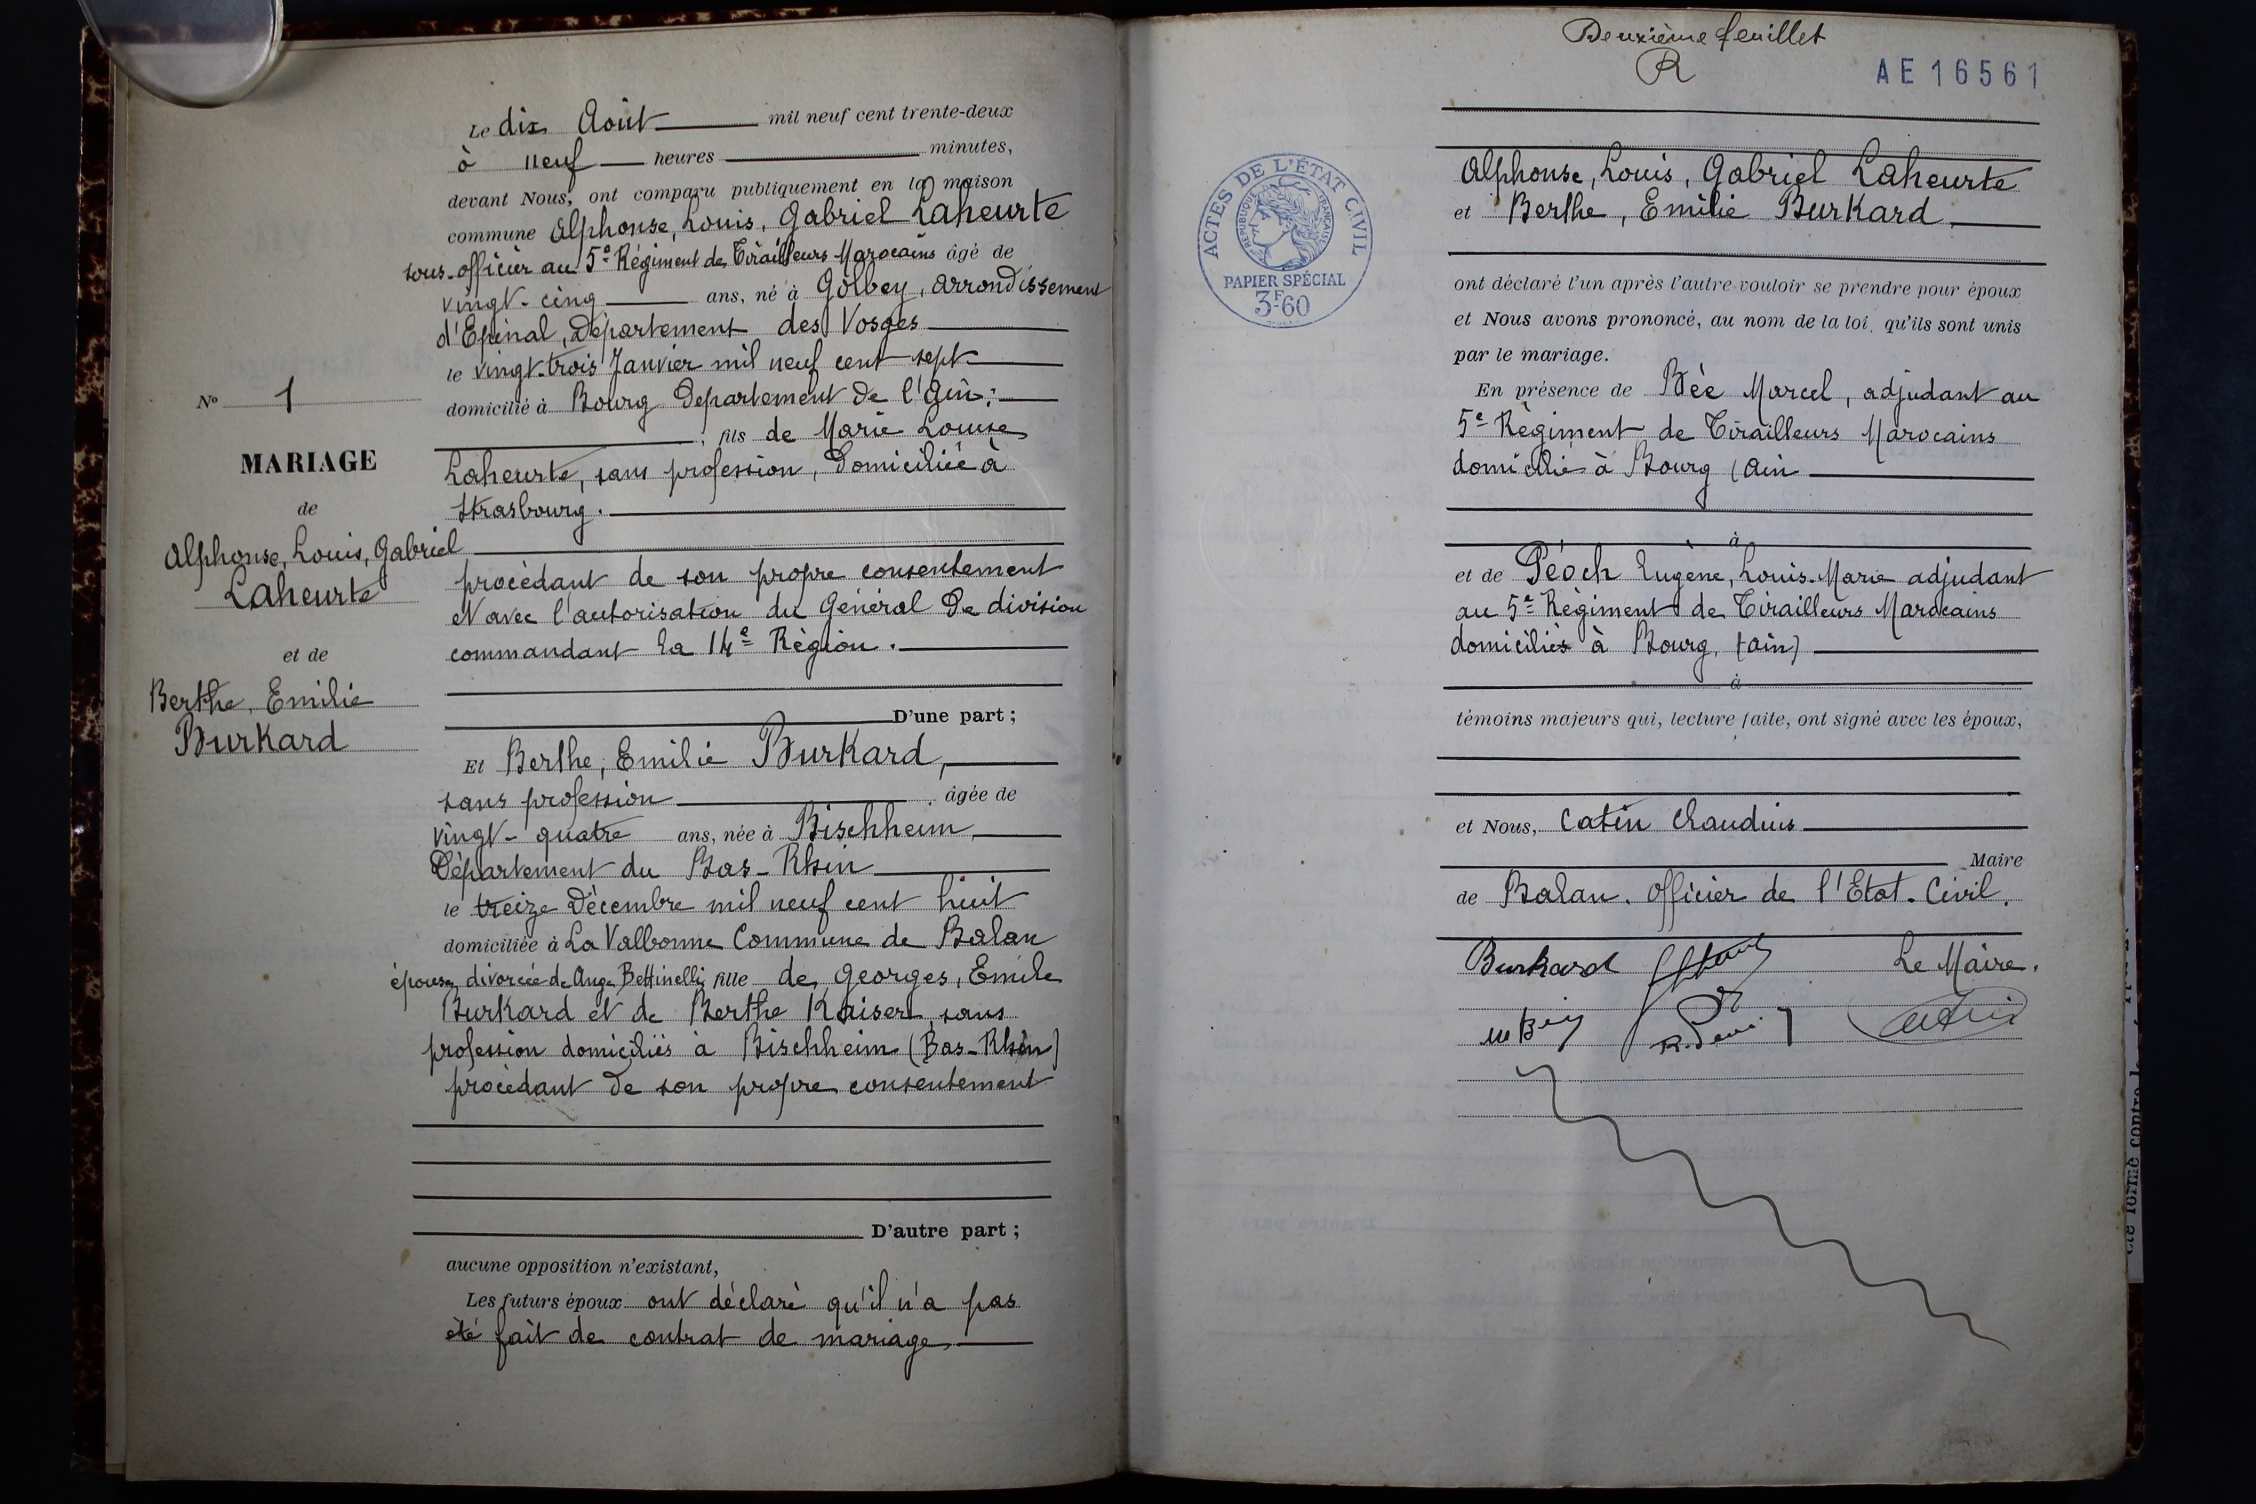 N° 1
MARIAGE
de
Alphonse, Louis, Gabriel
Laheurte
et de
Berthe, Emilie
Burkard
Le dix Août mil neuf cent trente-deux
à neuf heures minutes,
devant Nous, ont comparu publiquement en la maison
commune Alphonse, Louis, Gabriel Laheurte
sous-officier au 5e Régiment de Tirailleurs Marocains âgé de
vingt-cinq ans, né à Golbey, arrondissement
d'Epinal, Département des Vosges
le vingt-trois Janvier mil neuf cent sept
domicilié à Bourg Département de l'Ain;
; fils de Marie Louise
Laheurte, sans profession, domiciliée à
Strasbourg.
procèdant de son propre consentement
et avec l'autorisation du Général de division
commandant la 14e Région.
D'une part ;
Et Berthe, Emilie Burkard,
sans profession, âgée de
vingt-quatre ans, née à Bischheim
Département du Bas-Rhin
le treize Décembre mil neuf cent huit
domiciliée à La Valbonne Commune de Balan
épouse divorcée de Ange Bettinelli, fille de Georges, Emile
Burkard et de Berthe Kaiser, sans
profession domiciliés à Bischheim (Bas-Rhin)
procèdant de son propre consentement
D'autre part ;
aucune opposition n'existant,
Les futurs époux ont déclaré qu'il n'a pas
été fait de contrat de mariage
Deuxième feuillet
R
AE16561
ACTES DE L'ÉTAT CIVIL
RÉPUBLIQUE FRANÇAISE
PAPIER SPÉCIAL
3F60
Alphonse, Louis, Gabriel Laheurte
et Berthe, Emilie Burkard
ont déclaré l'un après l'autre vouloir se prendre pour époux
et Nous avons prononcé, au nom de la loi, qu'ils sont unis
par le mariage.
En présence de Bée Marcel, adjudant au
5e Règiment de Tirailleurs Marocains
domicilié à Bourg (Ain
à
et de Péoch Eugène, Louis-Marie adjudant
au 5e Régiment de Tirailleurs Marocains
domiciliés à Bourg, (Ain)
à
témoins majeurs qui, lecture faite, ont signé avec les époux,
et Nous, Catin Claudius
Maire
de Balan. Officier de l'Etat-Civil.
Burkard
Le Maire.